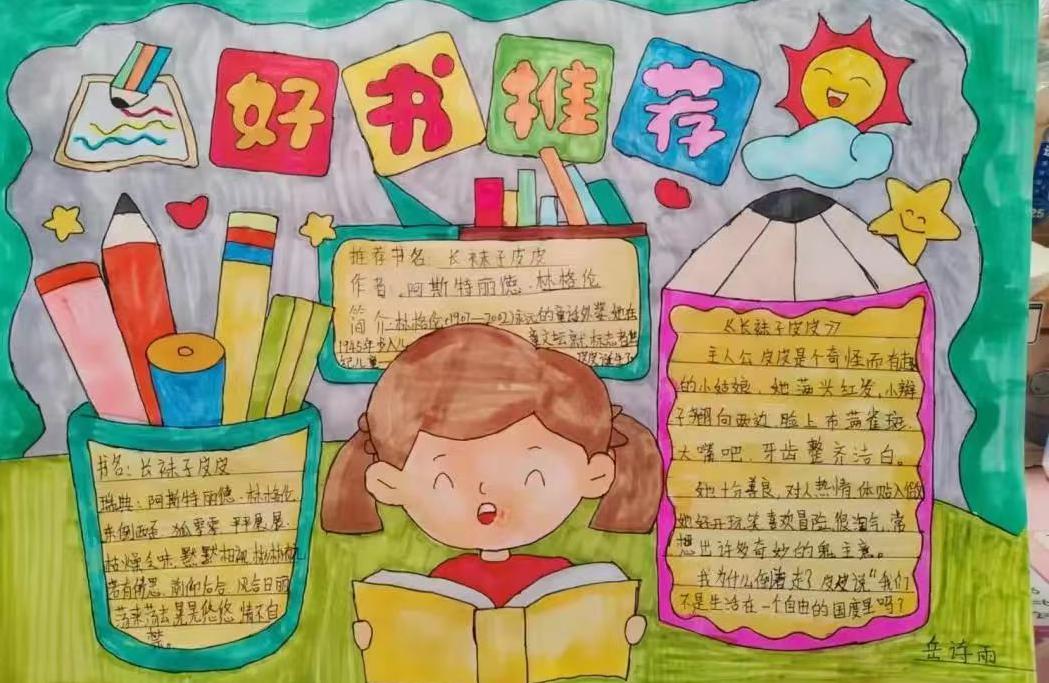 好书推荐
推荐书名：长袜子皮皮
作者：阿斯特丽德·林格伦
简介：林格伦(1907—2002)永远的童话外婆,她在
1945年步入儿 童文坛就标志着世
纪儿童
书名：长袜子皮皮
瑞典：阿斯特丽德·林格伦
东倒西歪 孤零零 平平展展
枯燥乏味 默默相视 彬彬有
若有所思 前仰后合 风合日丽
荡来荡去 晃晃悠悠 情不自
禁。
《长袜子皮皮》
主人公皮皮是个奇怪而有趣
的小姑娘。她满头红发,小辫
子翘向两边 脸上布满雀斑,
大嘴吧,牙齿整齐洁白。
她十分善良,对人热情 体贴入微
她好开玩笑喜欢冒险 很淘气,常
想出许多奇妙的鬼主意。
我为什么倒着走?皮皮说“我们
不是生活在一个自由的国度里吗?
岳诗雨